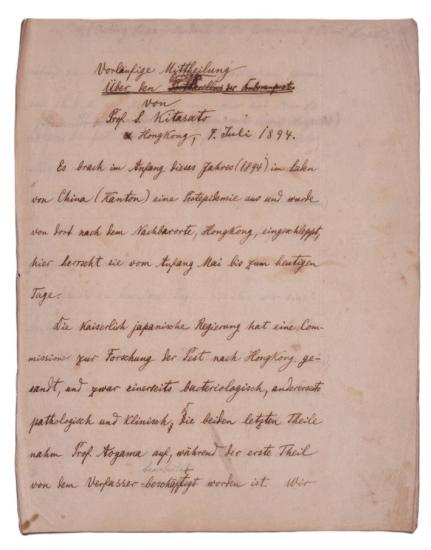 Vorläufige Mittheilung
Über den
von
Prof. S. Kitasato
Hongkong, 7. Juli 1894.
Es brach im Anfang dieses Jahres (1894) im
von China (Kanton) eine Pestepidemie aus und wurde
von dort nach dem Nachbarorte, Hongkong, eingeschleppt,
hier herrscht sie vom Anfang Mai bis zum heutigen
Tage.
Die Kaiserlich japanische Regierung hat eine Com-
mission zur Forschung der Pest nach Hongkong ge-
sandt, und zwar einerseits bacteriologisch, andererseits
pathologisch und klinisch; die beiden letzten Theile
nahm Prof. Aoyama auf, während der erste Theil
von dem Verfasser beschäftigt worden ist. Wir